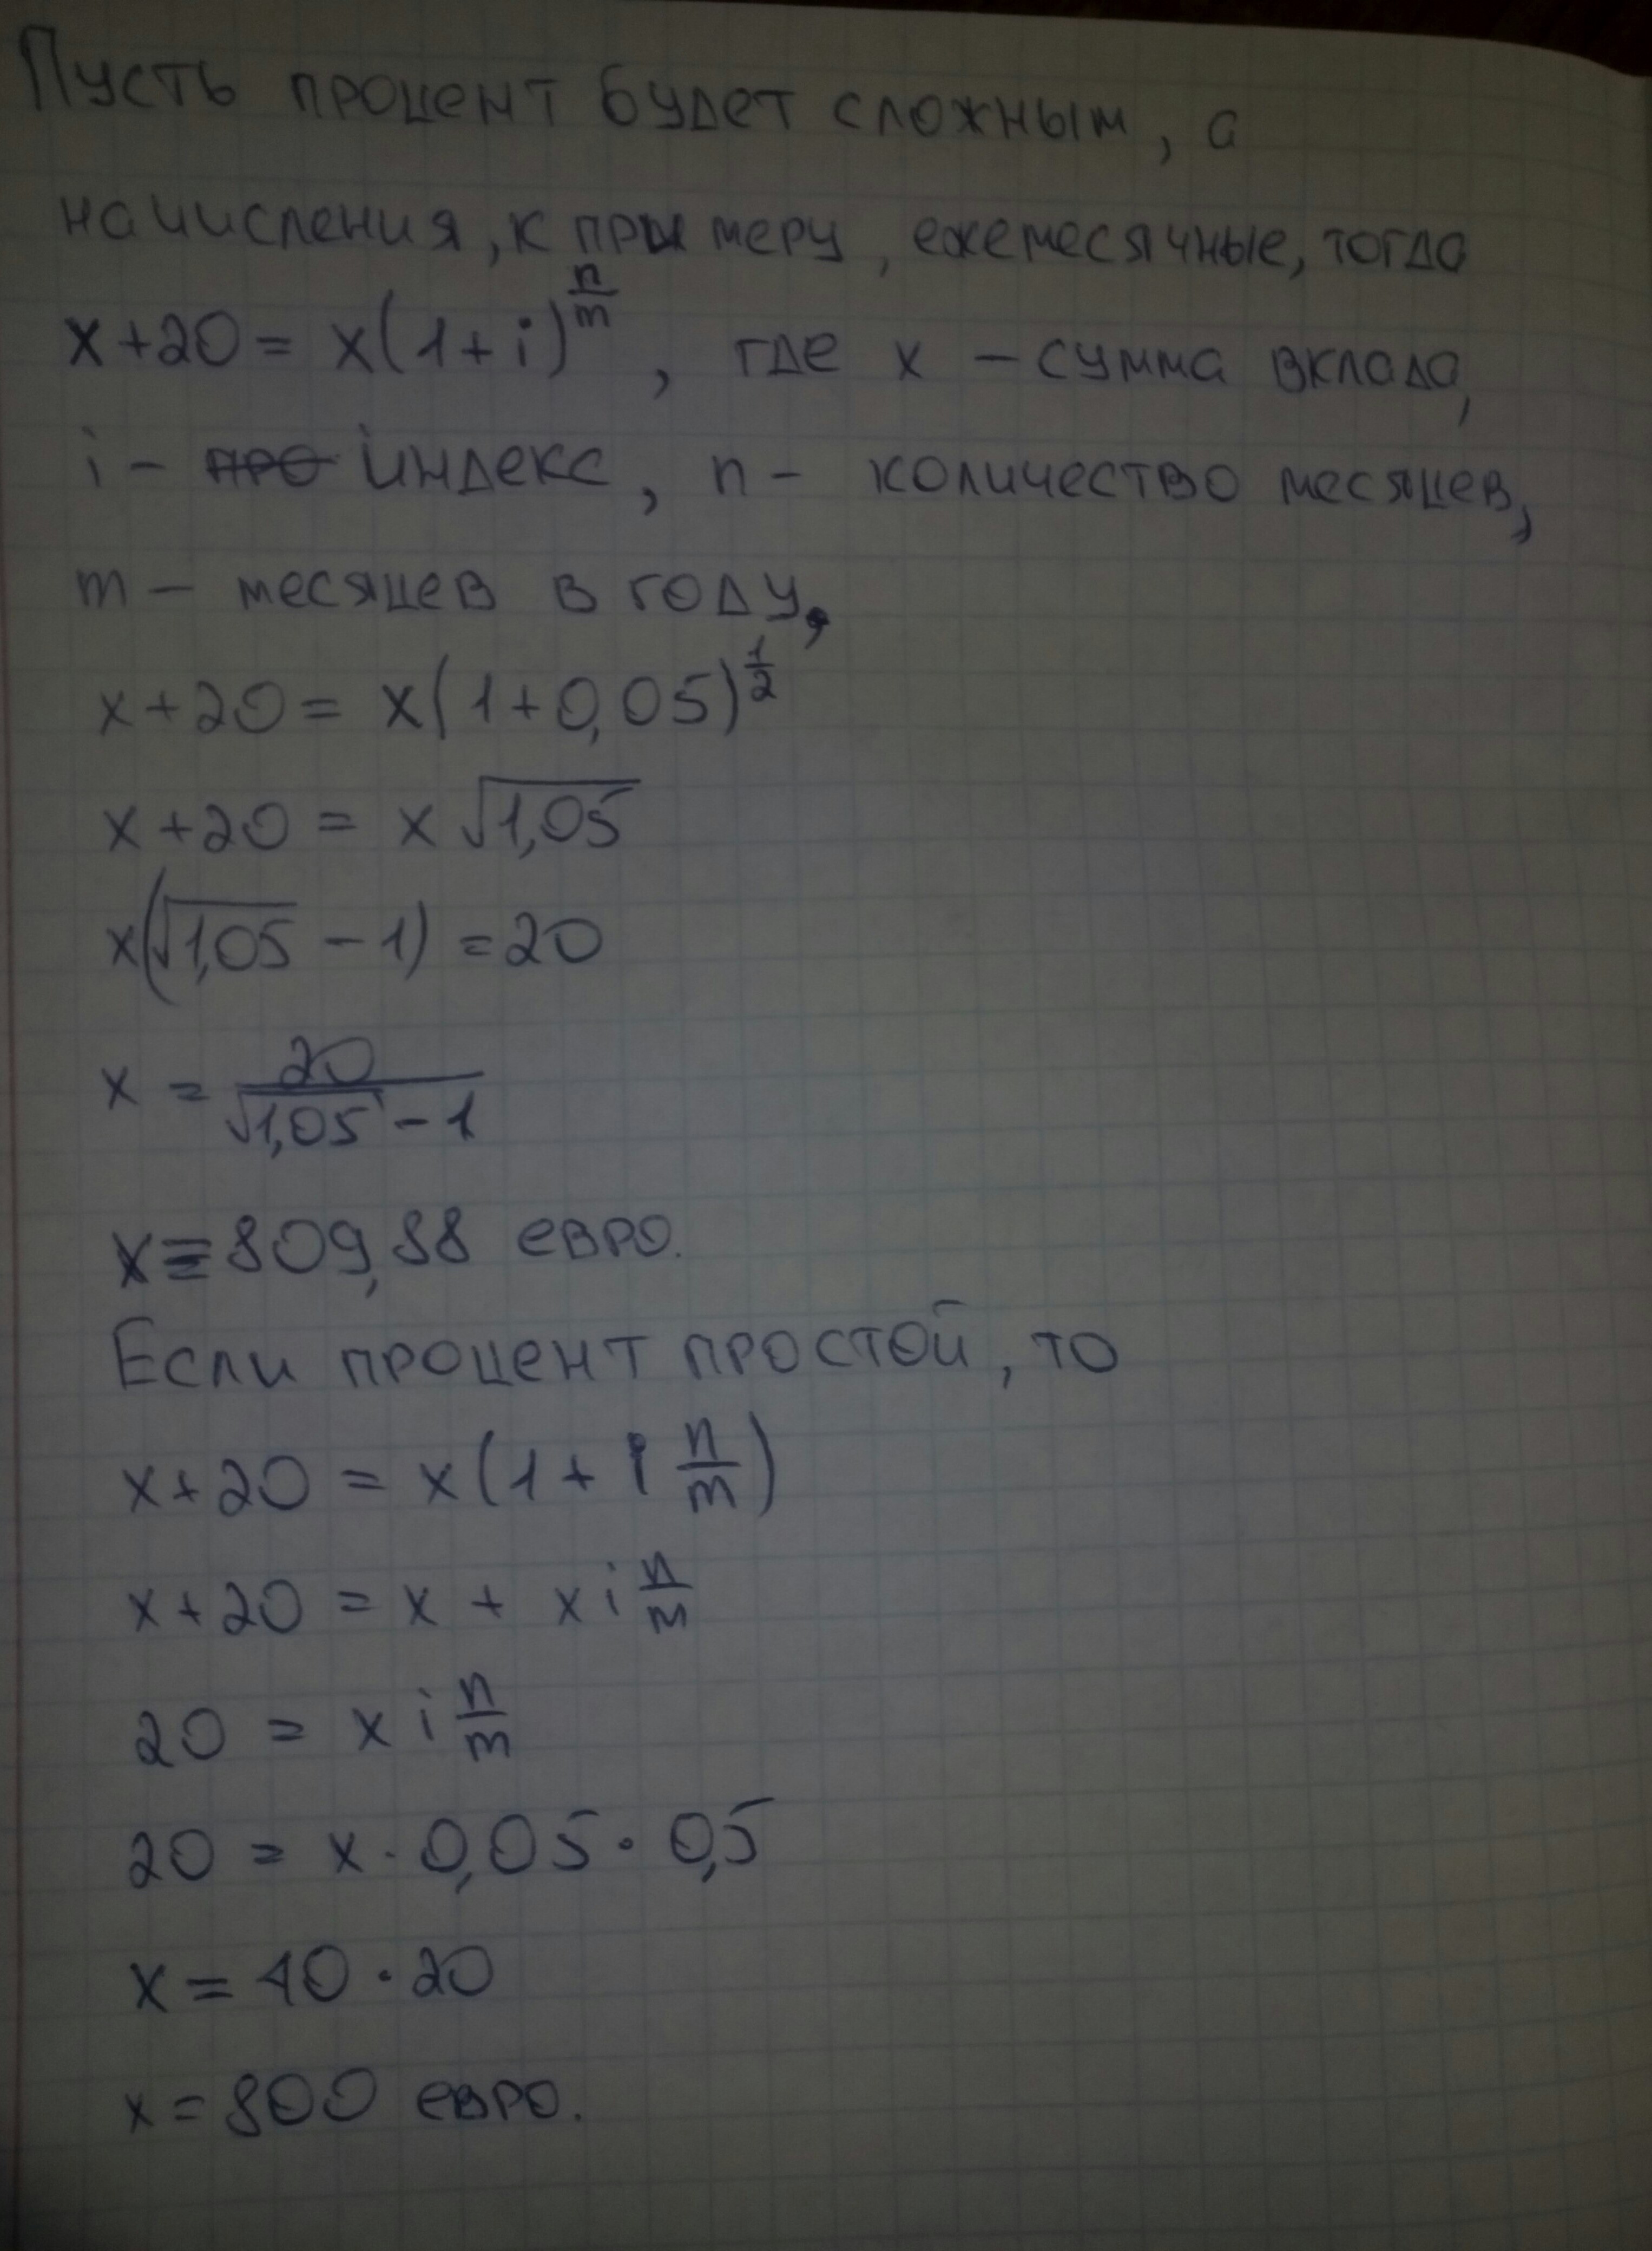 Пусть процент будет сложным, а
начисления, к примеру, ежемесячные, тогда
x+20 = x(1+i)^(n/m), где x – сумма вклада,
i – про индекс, n – количество месяцев,
m – месяцев в году,
x+20 = x(1+0,05)^(1/2)
x+20 = x√1,05
x(√1,05 – 1) = 20
x = 20/(√1,05 – 1)
x = 809,88 евро.
Если процент простой, то
x+20 = x(1 + i n/m)
x+20 = x + x i n/m
20 = x i n/m
20 = x · 0,05 · 0,5
x = 40 · 20
x = 800 евро.